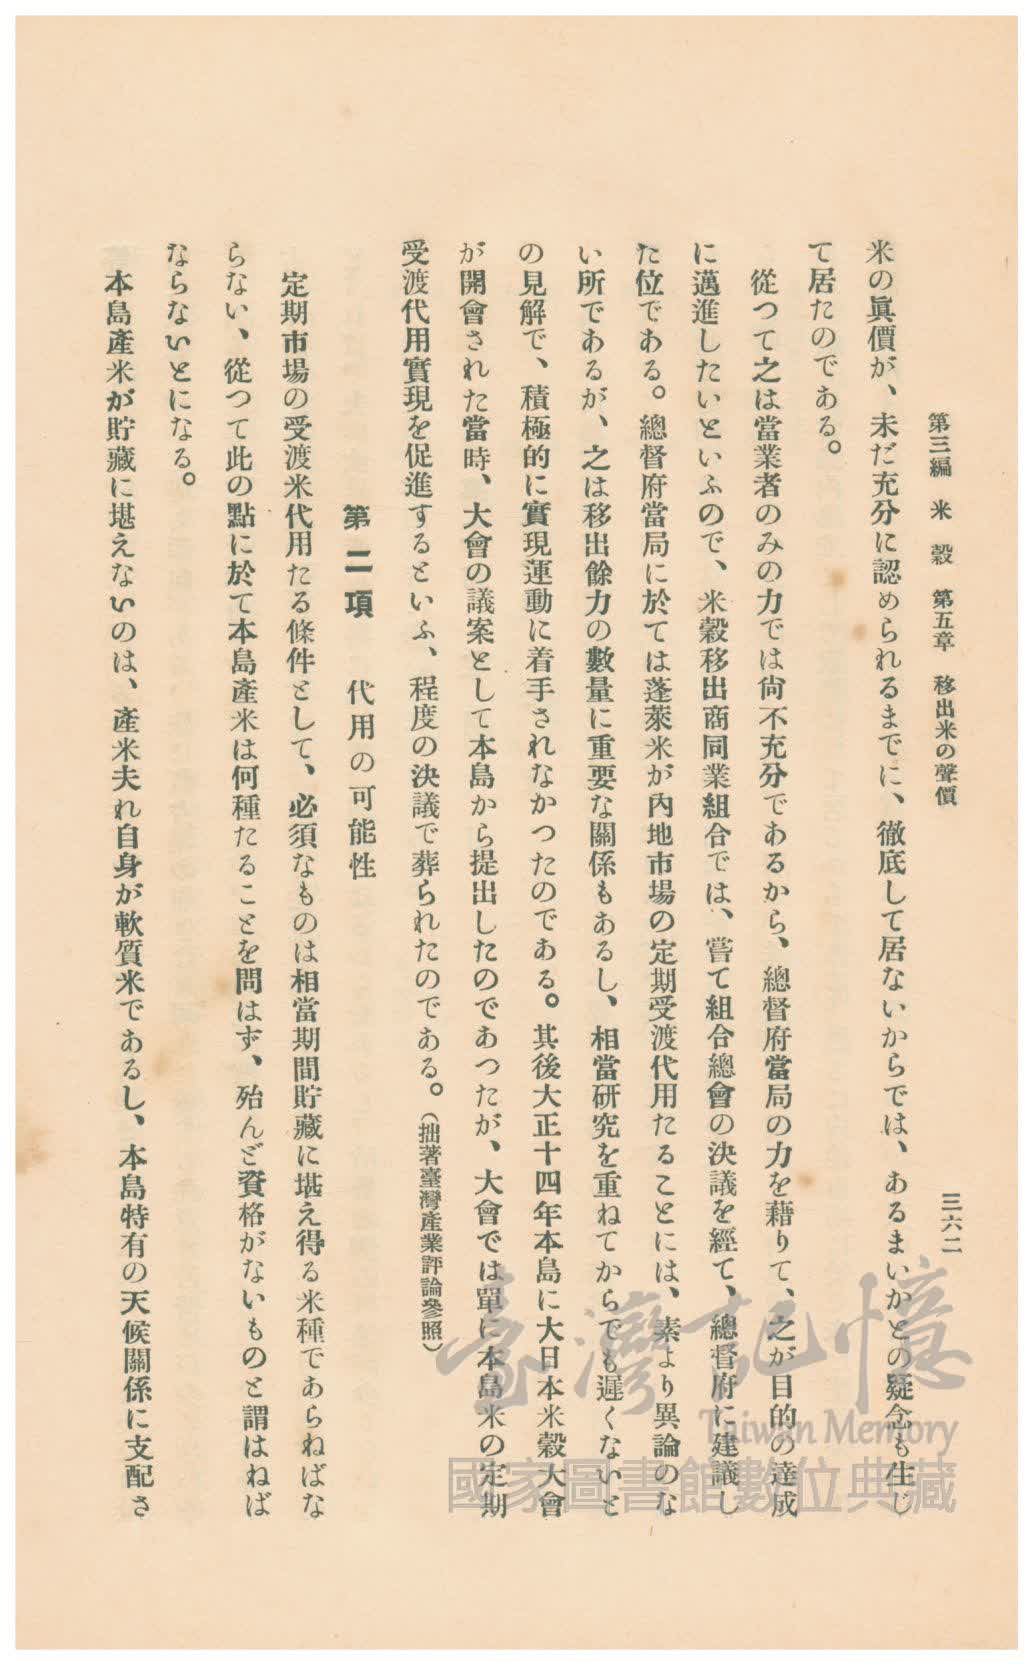 第三編　米　穀　第五章　移出米の聲價
三六二
米の眞價が、未だ充分に認められるまでに、徹底して居ないからでは、あるまいかとの疑念も生じ
て居たのである。
從つて之は當業者のみの力では尙不充分であるから、總督府當局の力を藉りて、之が目的の達成
に邁進したいといふので、米穀移出商同業組合では、嘗て組合總會の決議を經て、總督府に建議し
た位である。總督府當局に於ては蓬萊米が內地市場の定期受渡代用たることには、素より異論のな
い所であるが、之は移出餘力の數量に重要な關係もあるし、相當硏究を重ねてからでも遲くないと
の見解で、積極的に實現運動に着手されなかつたのである。其後大正十四年本島に大日本米穀大會
が開會された當時、大會の議案として本島から提出したのであつたが、大會では單に本島米の定期
受渡代用實現を促進するといふ、程度の決議で葬られたのである。（拙著臺灣產業評論參照）
第二項　代用の可能性
定期市場の受渡米代用たる條件として、必須なものは相當期間貯藏に堪え得る米種であらねばな
らない、從つて此の點に於て本島產米は何種たることを問はず、殆んど資格がないものと謂はねば
ならないとになる。
本島產米が貯藏に堪えないのは、產米夫れ自身が軟質米であるし、本島特有の天候關係に支配さ
臺灣記憶
Taiwan Memory
國家圖書館數位典藏